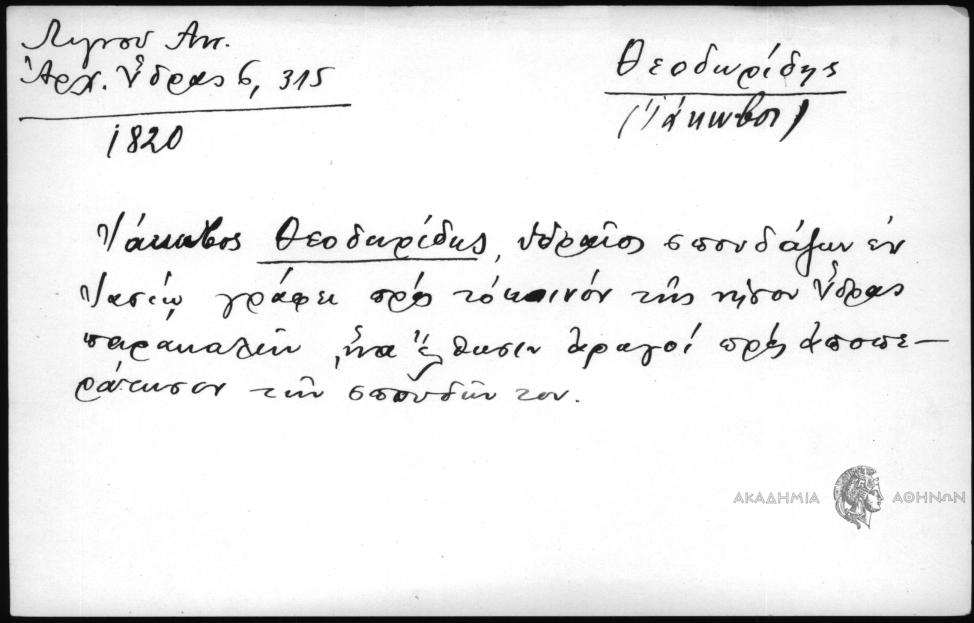 Λιγνοῦ Αντ.
Ἀρχ. Ὕδρας 6, 315
1820
Θεοδωρίδης
(Ἰάκωβος)
Ἰάκωβος Θεοδωρίδης, ὑδραῖος σπουδάζων ἐν
Ἰασίῳ γράφει πρὸς τὸ κοινόν τῆς νήσου Ὕδρας
παρακαλῶν ἵνα ἔλθωσιν ἀρωγοί πρὸς ἀποπε-
ράτωσιν τῶν σπουδῶν του.
ΑΚΑΔΗΜΙΑ ΑΘΗΝΩΝ